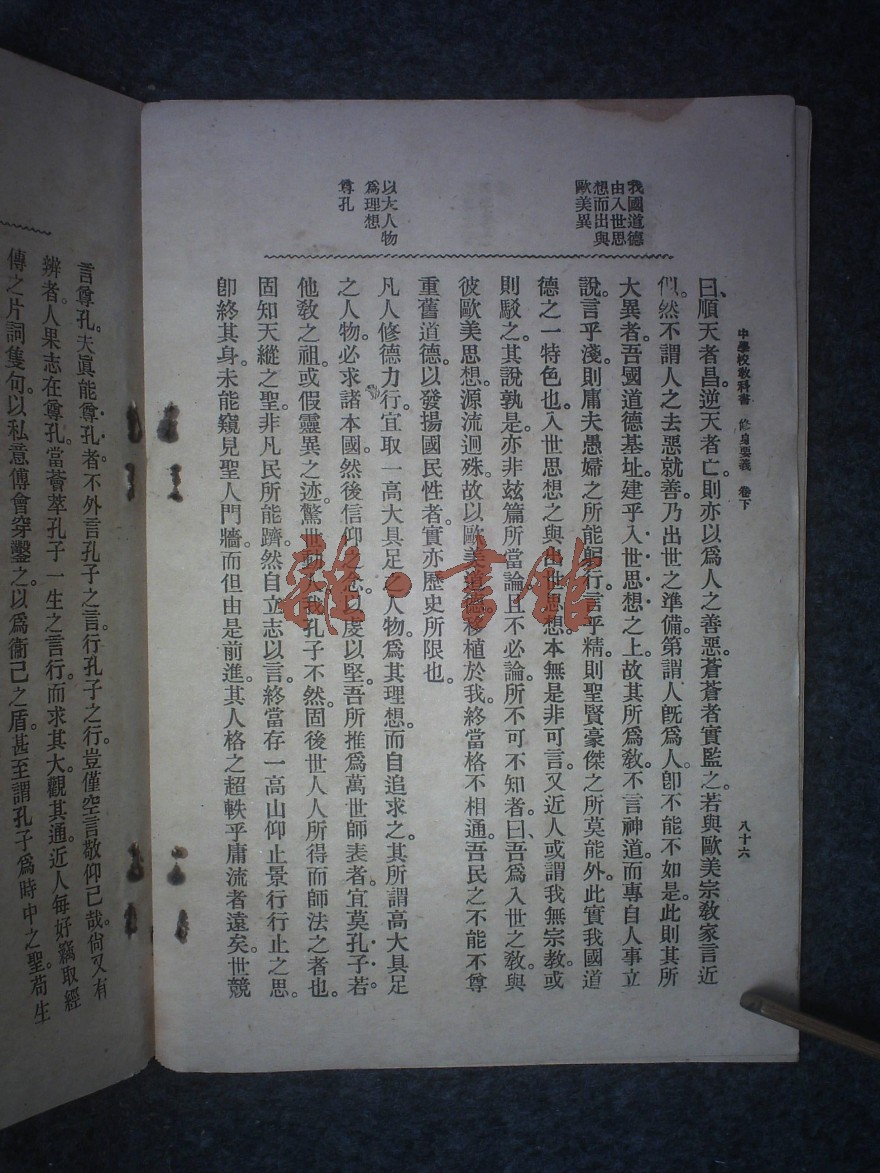 中學校教科書 修身要義 卷下
八十六
我國道德
由入世思
想而出與
歐美異
以大人物
爲理想
尊孔
曰、順天者昌。逆天者亡。則亦以爲人之善惡。蒼蒼者實監之。若與歐美宗敎家言近
似。然不謂人之去惡就善。乃出世之準備。第謂人旣爲人。卽不能不如是。此則其所
大異者。吾國道德基址。建乎入世思想之上。故其所爲敎。不言神道。而專自人事立
說。言乎淺。則庸夫愚婦之所能躬行。言乎精。則聖賢豪傑之所莫能外。此實我國道
德之一特色也。入世思想之與出世思想。本無是非可言。又近人或謂我無宗敎。或
則駁之。其說孰是。亦非玆篇所當論。且不必論。所不可不知者。曰、吾爲入世之敎。與
彼歐美思想。源流迥殊。故以歐美道德移植於我。終當格不相通。吾民之不能不尊
重舊道德。以發揚國民性者。實亦歷史所限也。
凡人修德力行。宜取一高大具足之人物。爲其理想。而自追求之。其所謂高大具足
之人物。必求諸本國。然後信仰之念。以虔以堅。吾所推爲萬世師表者。宜莫孔子若。
他敎之祖。或假靈異之迹。驚世動人。我孔子不然。固後世人人所得而師法之者也。
固知天縱之聖。非凡民所能躋。然自立志以言。終當存一高山仰止景行行止之思。
卽終其身。未能窺見聖人門牆。而但由是前進。其人格之超軼乎庸流者遠矣。世競
言尊孔。夫眞能尊孔者。不外言孔子之言。行孔子之行。豈僅空言敬仰已哉。尙又有
辨者。人果志在尊孔。當薈萃孔子一生之言行。而求其大觀其通。近人每好竊取經
傳之片詞隻句。以私意傅會穿鑿之。以爲衞己之盾。甚至謂孔子爲時中之聖。苟生
雜·書館